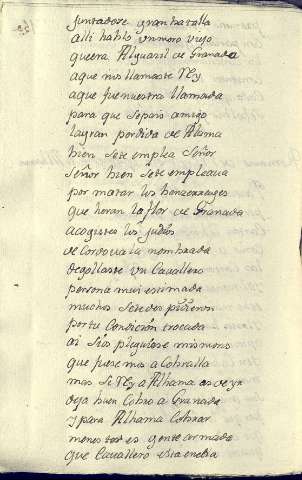 juntadose gran batalla
alli hablo un moro viejo
que era Alguasil de Granada
a que nos llamaste Rey
a que fue nuestra llamada
para que sepais amigo
la gran perdida de Alama
bien se te emplea Señor
Señor bien se te empleaua
por matar los benzerrages
que heran la flor de Granada
acogistes los judios
de Cordoua la nombrada
degollaste un Cauallero
persona mui estimada
muchos se te dis pidieron
por tu Condicion trocada
ai si os pluguiese mis moros
que fuesemos a Cobralla
mas si Rey a Alhama es de yr
deja buen Cobro a Granada
y para Alhama Cobrar
menester es gente armada
que Cauallero esta en ella